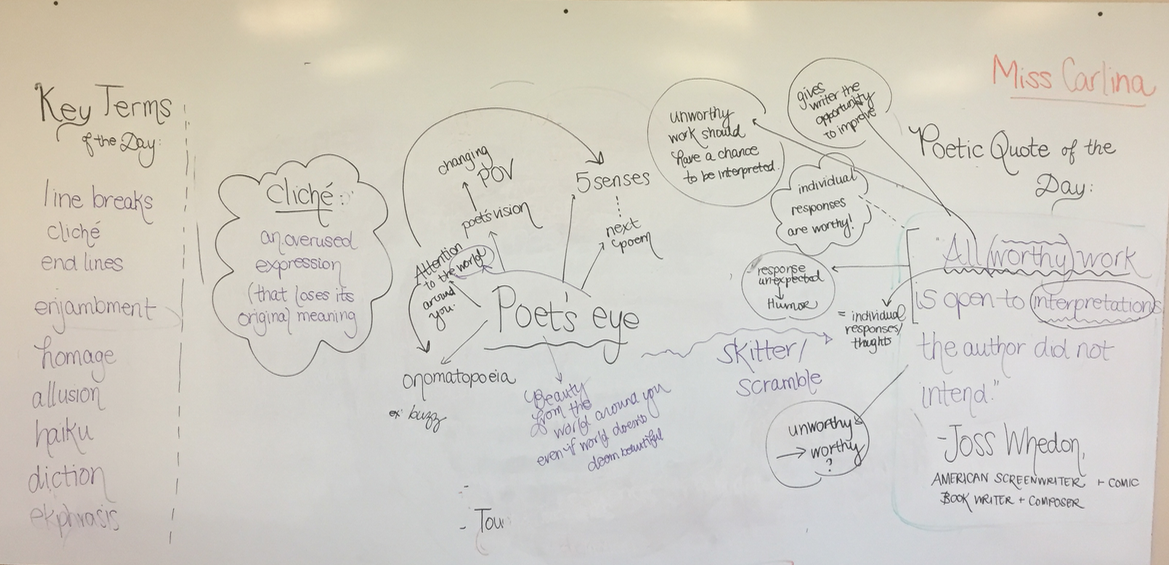 Miss Carlina
Key Terms
of the Day:
line breaks
cliché
end lines
enjambment
homage
allusion
haiku
diction
ekphrasis
cliché:
an overused
expression
(that loses its
original meaning
changing
POV
poet's vision
Attention
to the world
around
you.
5 senses
next
poem
Poet's eye
onomatopoeia
ex: buzz
Beauty
from the
world around you
even if world doesn't
deem beautiful
- Tour
Skitter/
scramble
unworthy
work should
have a chance
to be interpreted.
gives
writer the
opportunity
to improve
individual
responses
are worthy!
response
unexpected
Humor
= individual
responses/
thoughts
unworthy
→ worthy
?
Poetic Quote of the
Day:
"All (worthy) work
is open to interpretations
the author did not
intend."
-Joss Whedon,
AMERICAN SCREENWRITER + COMIC
BOOK WRITER + COMPOSER